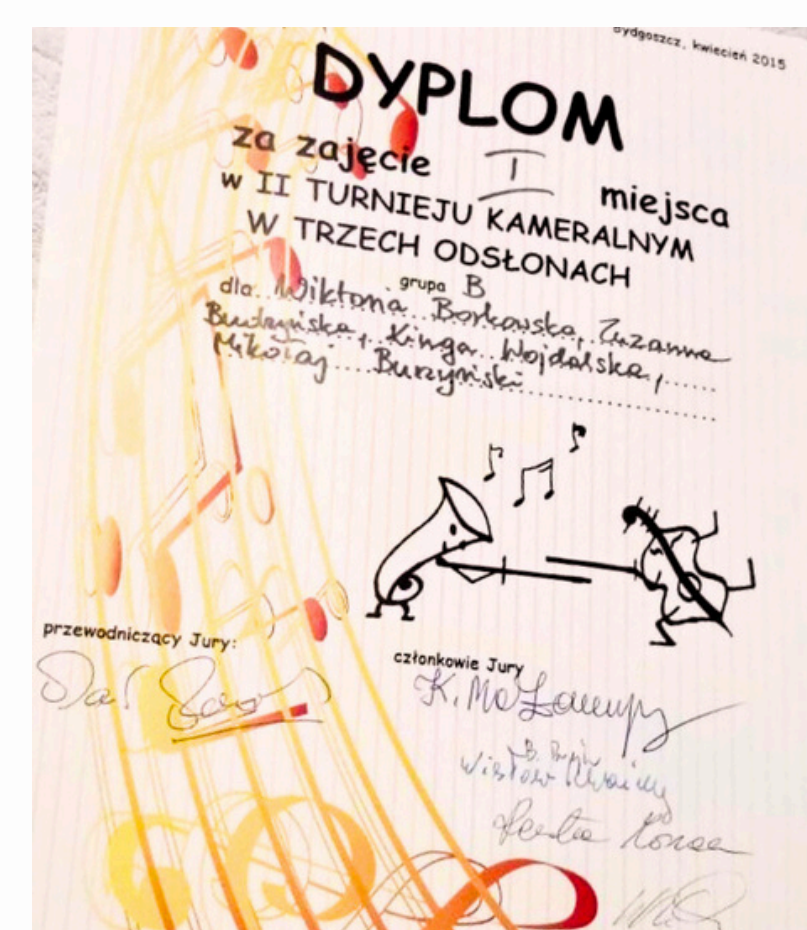 Bydgoszcz, kwiecień 2015
DYPLOM
za zajęcie I miejsca
w II TURNIEJU KAMERALNYM
W TRZECH ODSŁONACH
grupa B
dla Wiktoria Borkowska, Zuzanna
Budzyńska, Kinga Wojdalska,
Mikołaj Burzyński
przewodniczący Jury:
członkowie Jury
K.